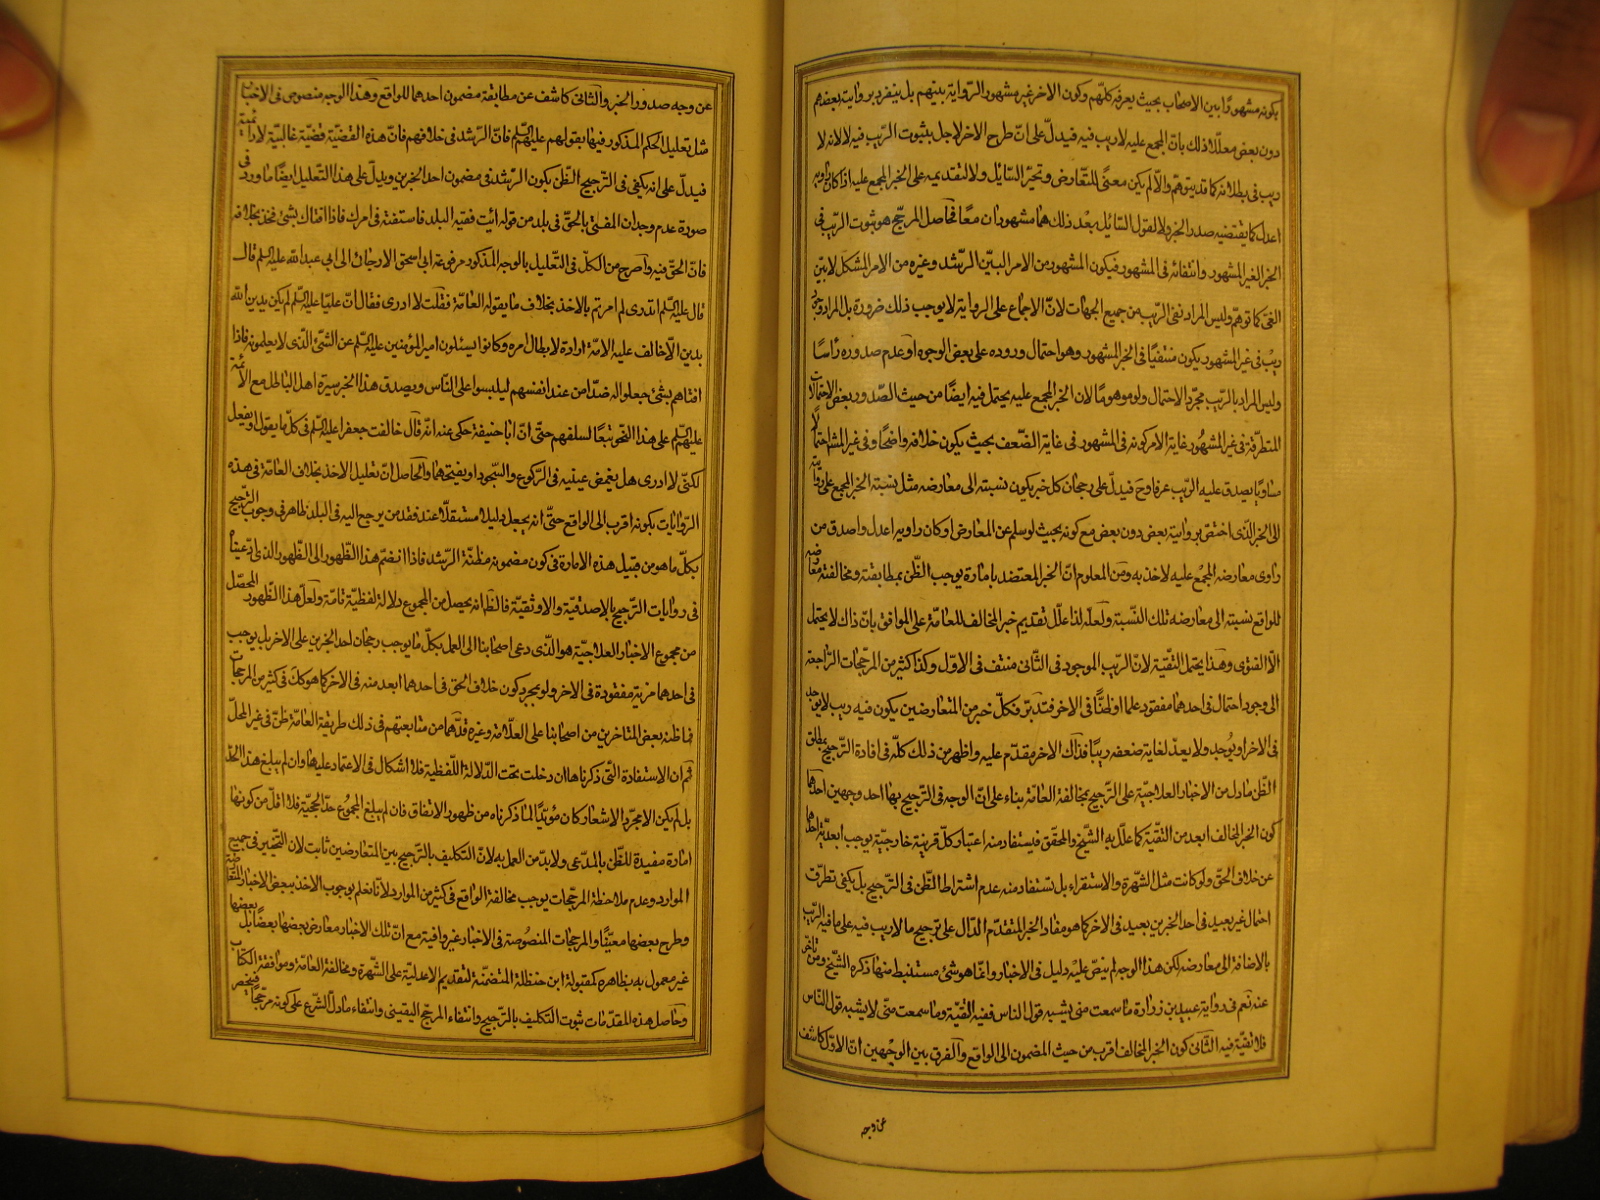 يكونه مشهورًا بين الاصحاب بحيث يعرفه كلّهم وكون الاخر غير مشهور الرّواية بينهم بل ينفرد بروايته بعضهم
دون بعض معلّلا ذلك بانّ المجمع عليه لا ريب فيه فيدلّ على انّ طرح الاخر لاجل ثبوت الرّيب فيه لا لانه لا
ريب فى بطلانه كما قد يتوهّم والّا لم يكن معنًى للتّعارض وتحيّر السّائل ولا لتقديمه على الخبر المجمع عليه اذا كان راويه
اعدل كما يقتضيه صدر الخبر ولا لقول السّائل بعد ذلك هما مشهوران معًا فحاصل المرجّح هو ثبوت الرّيب فى
الخبر الغير المشهور وانتفائه فى المشهور فيكون المشهور من الامر البيّن الرّشد وغيره من الامر المشكل لا بيّن
الغىّ كما توهّم وليس المراد نفى الرّيب من جميع الجهات لانّ الاجماع على الرواية لا يوجب ذلك ضرورة بل المراد وجود
ريب فى غير المشهور يكون منتفيًا فى الخبر المشهور وهو احتمال وروده على بعض الوجوه او عدم صدوره رأسًا
وليس المراد بالرّيب مجرّد الاحتمال ولو موهومًا لان الخبر المجمع عليه يحتمل فيه ايضًا من حيث الصّدور بعض الاحتمالات
المتطرّقة فى غير المشهور غاية الامر كونه فى المشهور فى غاية الضّعف بحيث يكون خلافه واضحًا وفى غير المش احتمالًا
مساويًا يصدق عليه الرّيب عرفا وحَ فيدلّ على رجحان كلّ خبر يكون نسبته الى معارضه مثل نسبة الخبر المجمع على روايته
الى الخبر الّذى اختصّ بروايته بعض دون بعض مع كونه بحيث لو سلم عن المعارض او كان راويه اعدل واصدق من
راوى معارضه المجمع عليه لاخذ به ومن المعلوم انّ الخبر المعتضد بامارة يوجب الظّن بمطابقته ومخالفة معارضه
للواقع نسبته الى معارضه تلك النّسبة ولعلّه لذا علّل تقديم خبر المخالف للعامّة على الموافق بانّ ذاك لا يحتمل
الّا الفتوى وهذا يحتمل التقيّة لانّ الرّيب الموجود فى الثّانى منتف فى الاوّل وكذا كثير من المرجّحات الرّاجعة
الى وجود احتمال فى احدهما مفقود علما او ظنًّا فى الاخر فتدبّر فكلّ خبر من المتعارضين يكون فيه ريب لا يوجد
فى الاخر او يُوجد ولا يعدّ لغاية ضعفه ريبًا فذاك الاخر مقدّم عليه واظهر من ذلك كلّه فى افادة التّرجيح بمطلق
الظّن مادلّ من الاخبار العلاجيّة على التّرجيح بمخالفة العامّة بناء على انّ الوجه فى التّرجيح بها احد وجهين احدهما
كون الخبر المخالف ابعد من التقيّة كما علّل به الشّيخ والمحقق فيستفاد منه اعتبار كلّ قرينة خارجيّة يوجب ابعديّة احدهما
عن خلاف الحقّ ولو كانت مثل الشّهرة والاستقراء بل يستفاد منه عدم اشتراط الظّن فى التّرجيح بل يكفى تطرّق
احتمال غير بعيد فى احد الخبرين بعيد فى الاخر كما هو مفاد الخبر المتقدّم الدّال على ترجيح ما لا ريب فيه على ما فيه الرّيب
بالاضافة الى معارضه لكن هذا الوجه لم ينصّ عليه دليل فى الاخبار وانّما هو شئ مستنبط منها ذكره الشّيخ ومن تاخّر
عنه نعم فى رواية عبيد بن زرارة ما سمعت منى يشبه قول الناس ففيه التّقيّة وما سمعت منّى لا يشبه قول النّاس
فلا تقيّة فيه الثّانى كون الخبر المخالف اقرب من حيث المضمون الى الواقع والفرق بين الوجهين انّ الاوّل كاشف
عن وجه
عن وجه صدور الخبر والثّانى كاشف عن مطابقة مضمون احدهما للواقع وهذا الوجه منصوص فى الاخبار
مثل تعليل الحكم المذكور فيها بقولهم عليهم السّلم فانّ الرّشد فى خلافهم فانّ هذه القضيّة قضيّة غالبيّة لا دائميّة
فيدلّ على انه يكفى فى التّرجيح الظّن بكون الرّشد فى مضمون احد الخبرين ويدلّ على هذا التّعليل ايضًا ما ورد فى
صورة عدم وجدان المفتى بالحقّ فى بلد من قوله ائت فقيه البلد فاستفته فى امرك فاذا افتاك بشئ فخذ بخلافه
فانّ الحقّ فيه واصرح من الكلّ فى التّعليل بالوجه المذكور مرفوعة ابى اسحق الارجانى الى ابى عبد الله عليه السّلم قال
قال عليه السّلم اتدرى لم امرتم بالاخذ بخلاف ما يقوله العامّة فقلت لا ادرى فقال انّ عليّا عليه السّلم لم يكن يدين الله
بدين الّا خالف عليه الامّة ارادة لابطال امره وكانوا يسئلون امير المؤمنين عليه السّلم عن الشّئ الّذى لا يعلمونه فاذا
افتاهم بشئ جعلوا له ضدّا من عند انفسهم ليلبسوا على النّاس ويصدق هذا الخبر سيرة اهل الباطل مع الائمة
عليهم السّلم على هذا النّحو تبعًا لسلفهم حتّى انّ ابا حنيفة حكى عنه انّه قال خالفت جعفرا عليه السّلم فى كلّ ما يقول او يفعل
لكنّى لا ادرى هل يغمض عينيه فى الرّكوع والسّجود او يفتحهما والحاصل انّ تعليل الاخذ بخلاف العامّة فى هذه
الرّوايات بكونه اقرب الى الواقع حتّى انه يجعل دليلا مستقلّا عند فقد من يرجع اليه فى البلد ظاهر فى وجوب التّرجيح
بكلّ ما هو من قبيل هذه الامارة فى كون مضمونه مظنّة الرّشد فاذا انضمّ هذا الظّهور الى الظّهور الذى ادّعيناه
فى روايات التّرجيح بالاصدقيّة والاوثقيّة فالظّ انه يحصل من المجموع دلالة لفظيّة تامّة ولعلّ هذا الظّهور المحصّل
من مجموع الاخبار العلاجيّة هو الّذى دعى اصحابنا الى العمل بكلّ ما يوجب رجحان احد الخبرين على الاخر بل يوجب
فى احدهما مزية مفقودة فى الاخر ولو بمجرّد كون خلاف الحقّ فى احدهما ابعد منه فى الاخر كما هو كك فى كثير من المرجّحات
فما ظنه بعض المتاخرين من اصحابنا على العلّامة وغيره قدّهما من متابعتهم فى ذلك طريقة العامّة ظنّ فى غير المحلّ
ثم ان الاستفادة الّتى ذكرناها ان دخلت تحت الدّلالة اللّفظية فلا اشكال فى الاعتماد عليها وان لم يبلغ هذا الحدّ
بل لم يكن الا مجرّد الاشعار كان مؤيّدًا لما ذكرناه من ظهور الاتفاق فان لم يبلغ المجموع حدّ الحجيّة فلا اقلّ من كونها
امارة مفيدة للظّن بالمدّعى ولا بدّ من العمل به لانّ التكليف بالتّرجيح بين المتعارضين ثابت لان التّخيير فى جميع
الموارد وعدم ملاحظة المرجّحات يوجب مخالفة الواقع فى كثير من الموارد لانّا نعلم بوجوب الاخذ ببعض الاخبار المتعارضة
وطرح بعضها معيّنًا والمرجحات المنصوصة فى الاخبار غير وافية مع انّ تلك الاخبار معارض بعضها بعضًا بل بعضها
غير معمول به بظاهره كمقبولة ابن حنظلة المتضمّنة لتقديم الاعدليّة على الشّهرة ومخالفة العامّة وموافقة الكتاب
وحاصل هذه المقدّمات ثبوت التكليف بالتّرجيح وانتفاء المرجّح اليقينى وانتفاء مادلّ الشّرع على كونه مرجّحًا فينحصر